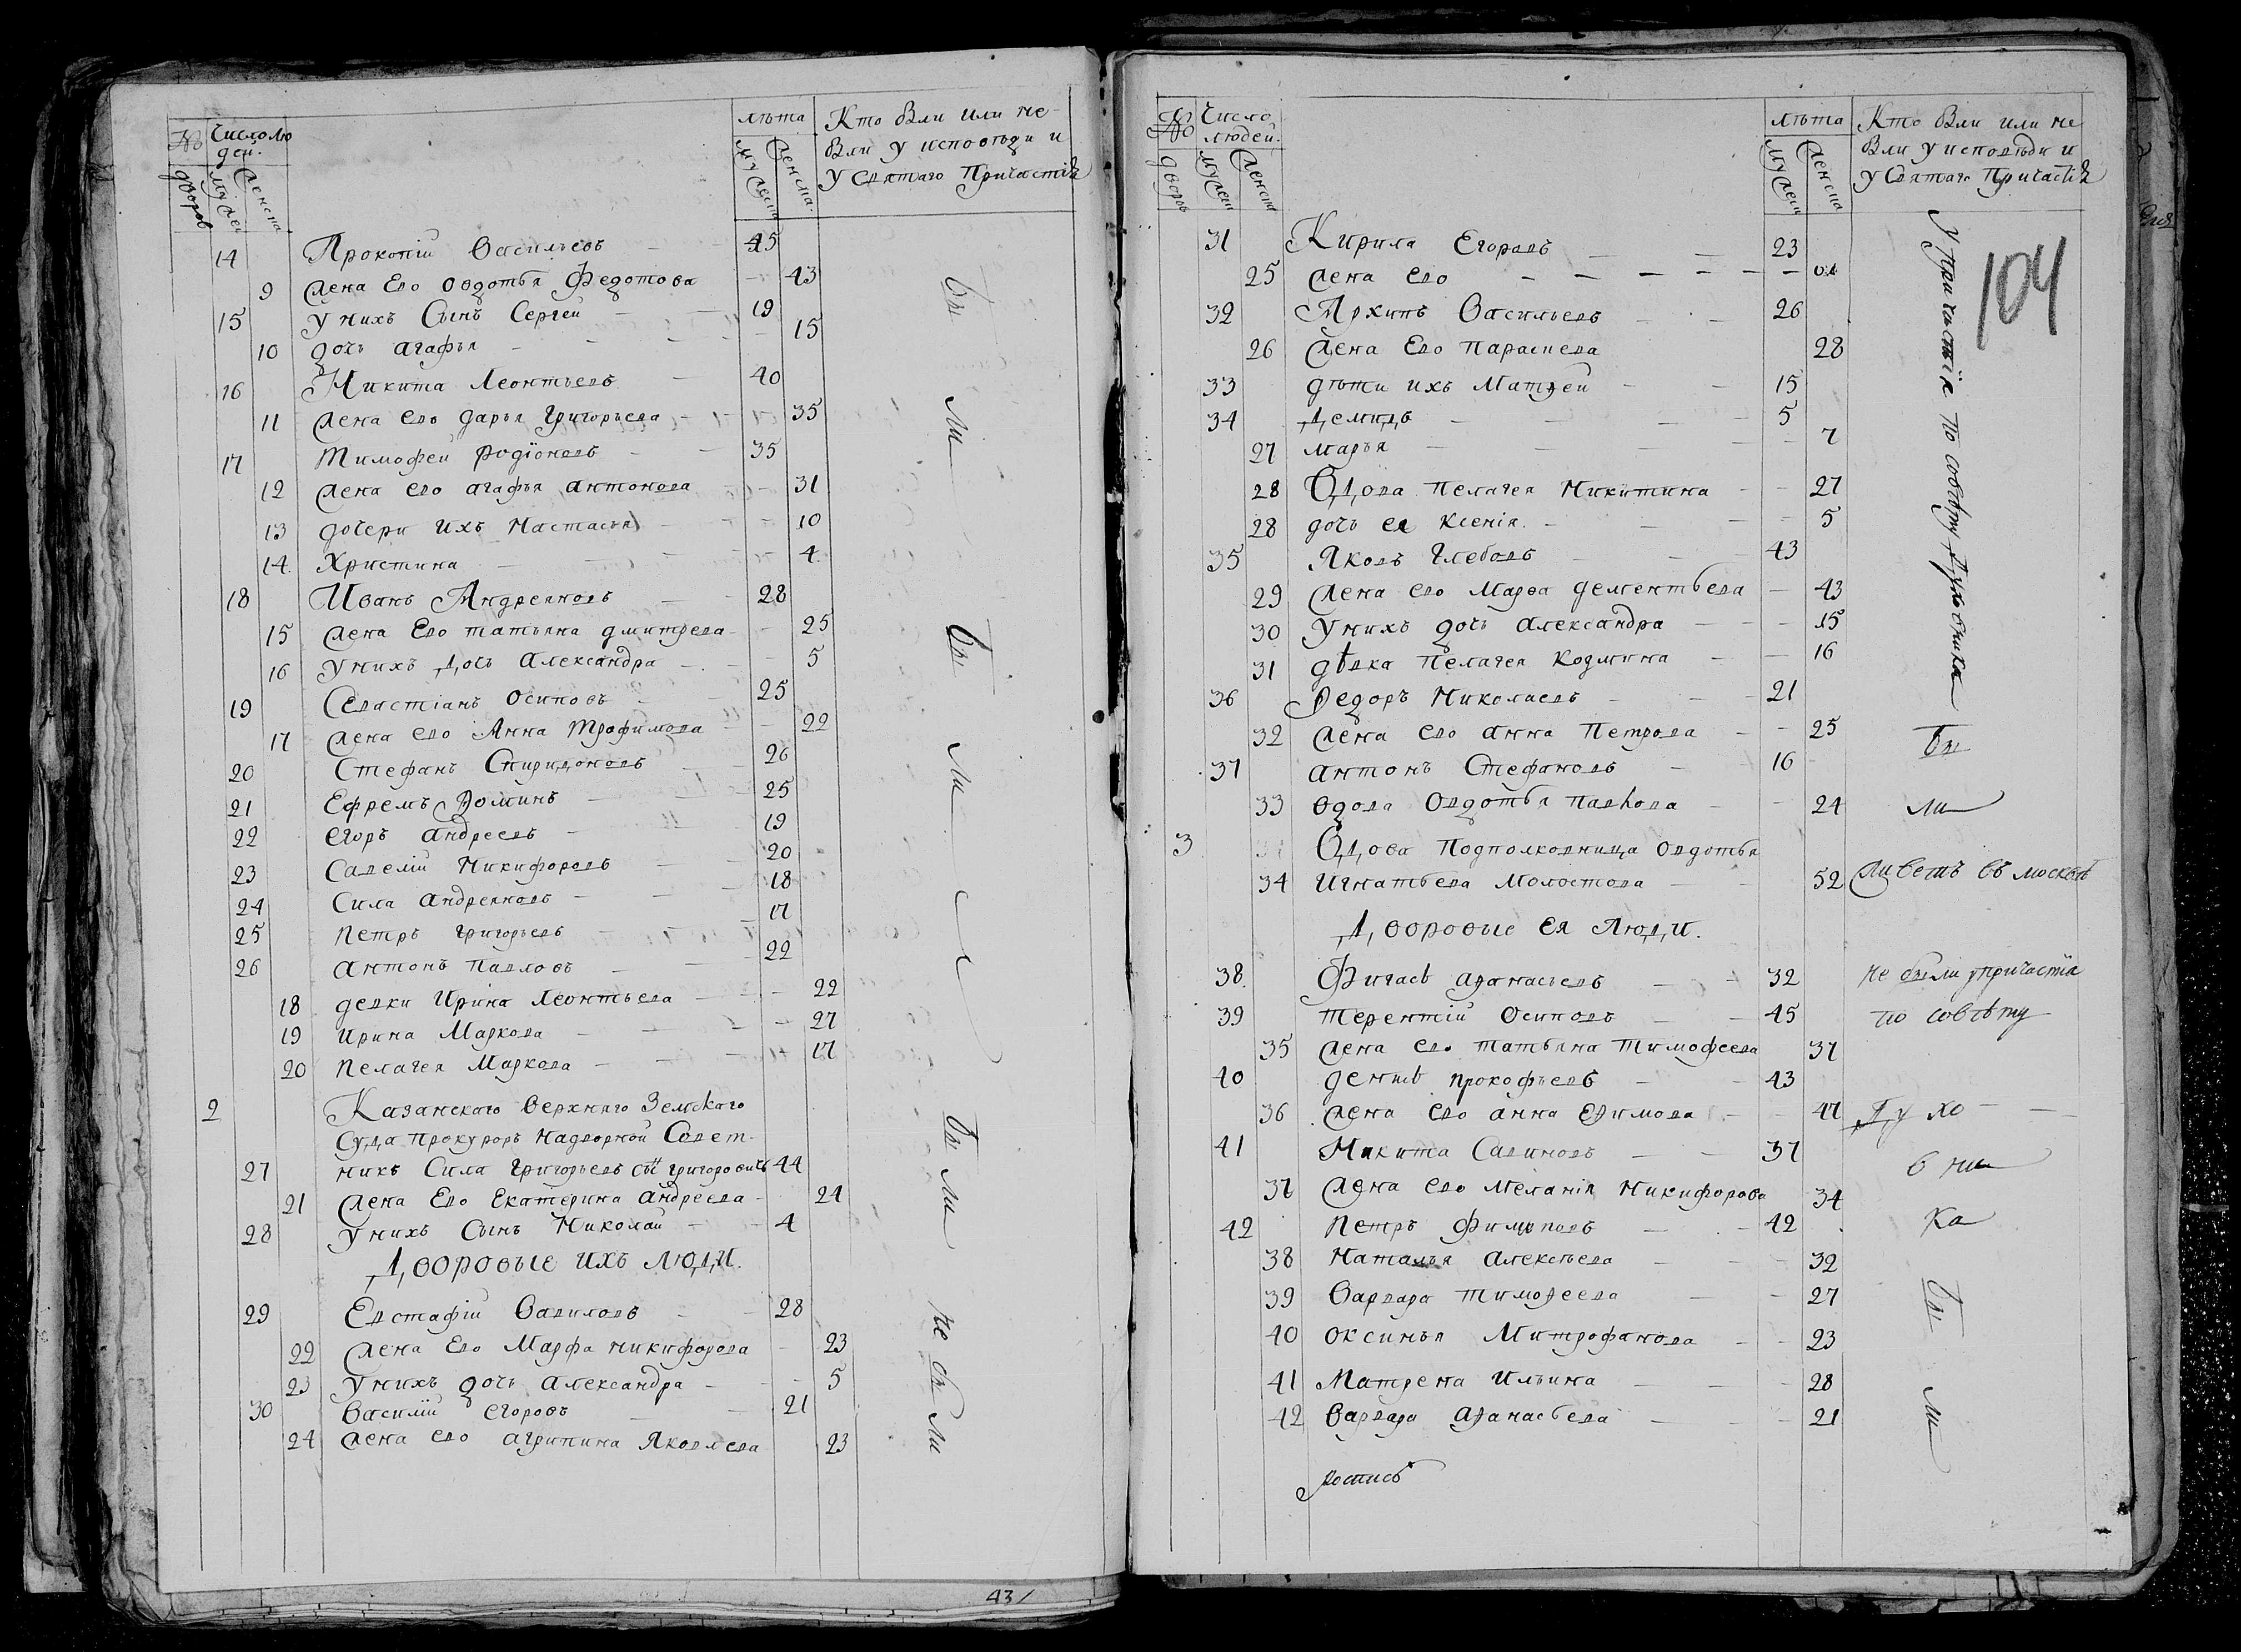 № Число лю лѣта Кто бли или не
дей. бли у исповѣди и
дворов мужеск женска мужеск женска. у святаго Причастїя
14 Прокопїи Васильевъ 45
9 жена Ево овдотья Федотова 43
15 у нихъ Сынъ Сергеи 19
10 дочь агафья 15
16 Никита Леонтьевъ 40
11 жена ево дарья григорьева 35
17 Тимофеи Родїоновъ 35
12 жена ево агафья антонова 31
13 дочери ихъ Настасья 10
14 Христина 4
18 Иванъ Андреяновъ 28
15 жена Ево татьяна дмитрева 25
16 у нихъ дочь александра 5
19 Севастїанъ осиповъ 25
17 жена ево Анна Трофимова 22
20 Стефанъ Спиридоновъ 26
21 Ефремъ Фоминъ 25
22 егоръ андреевъ 19
23 Савелїи Никифоровъ 20
24 Сила андреяновъ 18
25 петръ григорьевъ 17
26 антонъ павловъ 22
18 девки Ирина Леонтьева 22
19 ирина Маркова 27
20 пелагея Маркова 17
бы
ли
бы
ли
2 Казанскаго верхняго Земскаго
суда прокуроръ надворной Совет-
27 никъ Сила григорьевъ сн григоровичъ 44
21 жена Ево Екатерина андреева 24
28 у нихъ Сынъ Николаи 4
бы ли
Дворовые ихъ люди.
29 Евстафїи Вавиловъ 28
22 жена Ево Марфа никифорова 23
23 у нихъ дочь александра 5
30 Василїи егоровъ 21
24 жена ево агрипина Яковлева 23
не бы ли
43/
№ Число лѣта Кто бли или не
людей. бли у исповѣди и
дворов мужеск женска мужеск женска у святаго Причастїя
104
31 Кирила Егоровъ 23
25 жена ево
32 Архипъ Васильевъ 26
26 жена Ево параскева 28
33 дѣти ихъ Матфеи 15
34 Демидъ 5
27 марья 7
28 Вдова пелагея Никитина 27
28 дочь ея ксенїя. 5
35 Яковъ глебовъ 43
29 жена ево марфа дементьева 43
30 у нихъ дочь александра 15
31 дѣвка пелагея козмина 16
у причастїя по совѣту духовника
36 Федоръ Николаевъ 21
32 жена ево анна Петрова 25 бы
37 антонъ Стефановъ 16
33 вдова овдотья павлова 24 ли
3 Вдова Подполковница овдотья
34 игнатьева молостова 52 живетъ въ москвѣ
Дворовые ея люди.
38 Фигаевъ афанасьевъ 32 не были у причастїя
39 терентїи осиповъ 45 по совѣту
35 жена ево татьяна тимофеева 37
40 денисъ прокофьевъ 43
36 жена ево анна ефимова 47 духо
41 Никита Савиновъ 37 вни
37 жена ево меланїя никифорова 34
42 петръ филиповъ 42 ка
38 Наталья алексѣева 32
39 варвара тимофеева 27
40 оксинья Митрофанова 23
41 Матрена ильина 28
42 варвара афанасьева 21
бы
ли
роспись